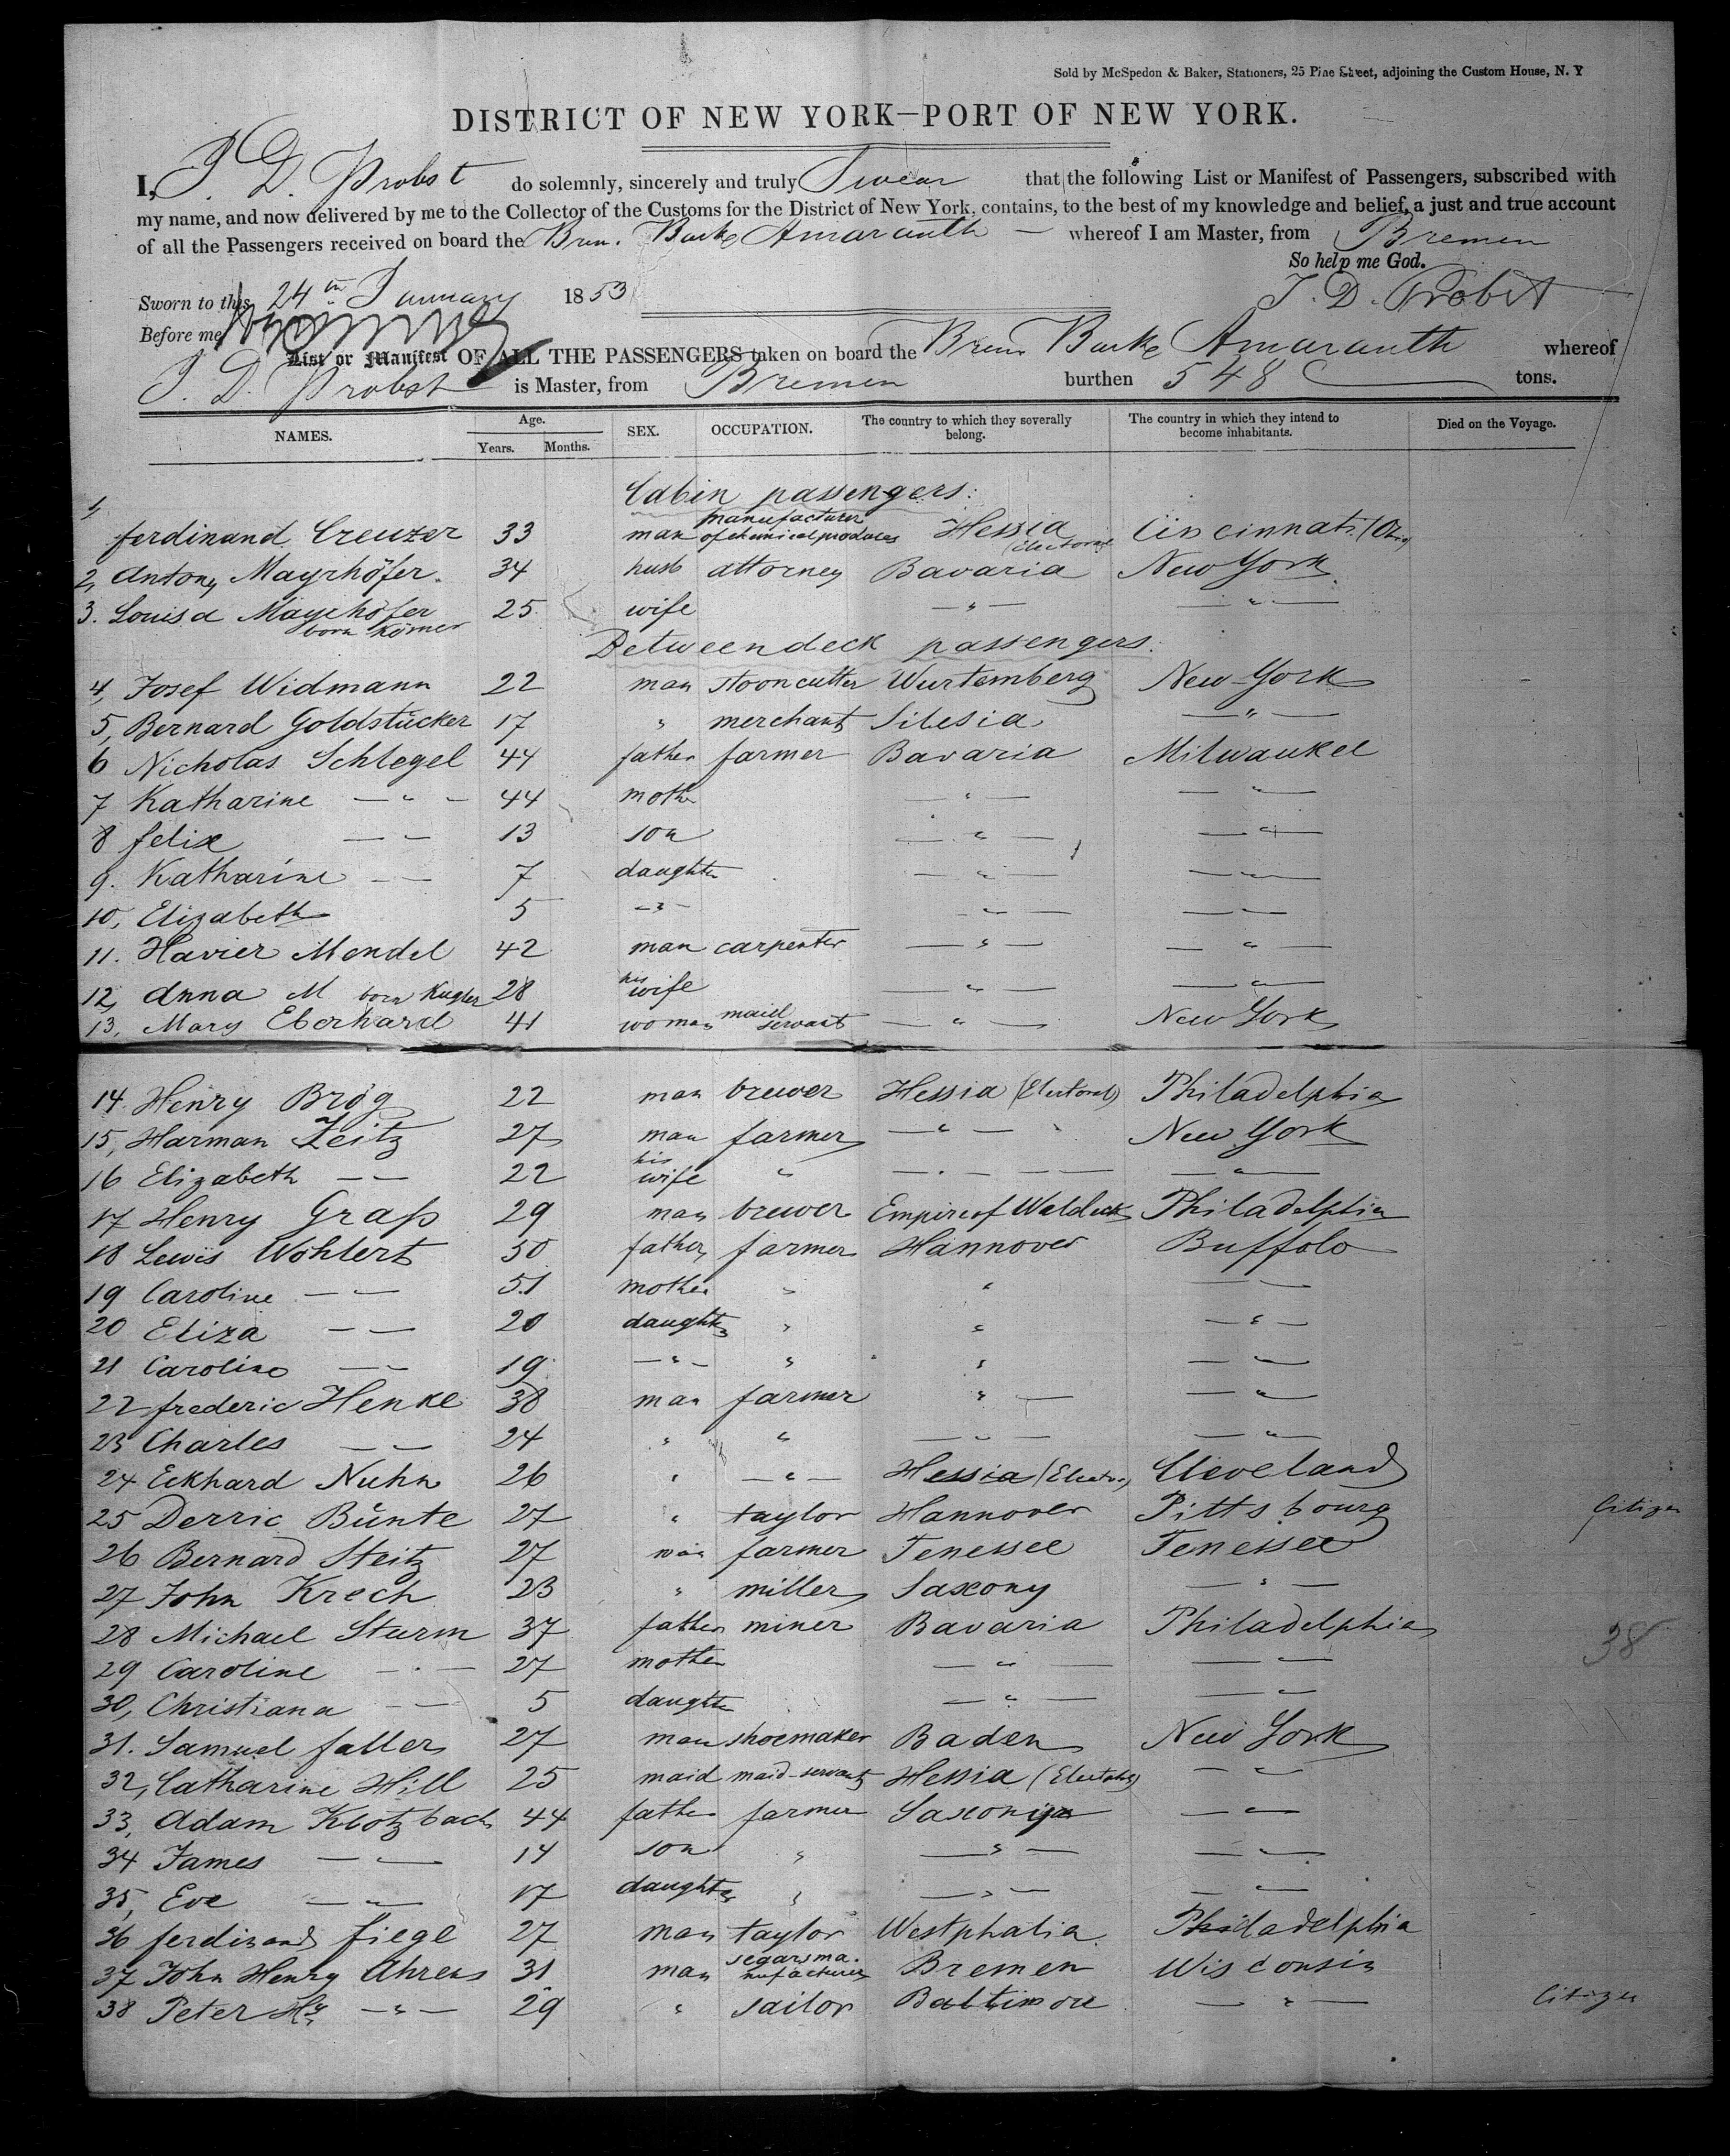 Sold by McSpedon & Baker, Stationers, 25 Pine Street, adjoining the Custom House, N. Y
DISTRICT OF NEW YORK—PORT OF NEW YORK.
I, J. D. Probst do solemnly, sincerely and truly Swear that the following List or Manifest of Passengers, subscribed with
my name, and now delivered by me to the Collector of the Customs for the District of New York, contains, to the best of my knowledge and belief, a just and true account
of all the Passengers received on board the Brem. Barke Amaranth — whereof I am Master, from Bremen
So help me God.
Sworn to this 24th January 1853 J. D. Probst
Before me
List or Manifest OF ALL THE PASSENGERS taken on board the Brem Barke Amaranth whereof
J. D. Probst is Master, from Bremen burthen 548 tons.
NAMES. Age. Years. Months. SEX. OCCUPATION. The country to which they severally belong. The country in which they intend to become inhabitants. Died on the Voyage.
Cabin passengers:
1, ferdinand Creuzer 33 man manufacturer of chemical produces Hessia (Electoral Cincinnati (Ohio)
2, Antony Mayrhöfer. 34 husb attorney Bavaria New York
3. Louisa Mayrhöfer born Körner 25 wife — " — — " —
Between deck passengers.
4, Josef Widmann 22 man stooncutter Wurtemberg New-York
5, Bernard Goldstücker 17 " merchant Silesia — " —
6 Nicholas Schlegel 44 father farmer Bavaria Milwaukee
7 Katharine — " — 44 mother — " — — " —
8 felix — — 13 son — " — — " —
9. Katharine — — 7 daughter — " — — " —
10, Elizabeth 5 — " — — " — — " —
11. Xavier Mendel 42 man carpenter — " — — " —
12, Anna M born Kugler 28 his wife — " — — " —
13, Mary Eberhard 41 woman maid servant — " — New York
14. Henry Brög 22 man brewer Hessia (Electoral) Philadelphia
15, Harman Zeitz 27 man farmer — " — New York
16 Elizabeth — — 22 his wife " — " — — — " —
17 Henry Graß 29 man brewer Empire of Waldeck Philadelphia
18 Lewis Wohlert 50 father farmer Hannover Buffolo
19 Caroline — — 51 mother " " — " —
20 Eliza — — 20 daughter " " — " —
21 Caroline — — 19 — " — " " — " —
22 frederic Henke 38 man farmer " — — " —
23 Charles — — 24 " " — " — — " —
24 Eckhard Nuhn 26 " — " — Hessia (Elector.) Cleveland
25 Derric Bünte 27 " taylor Hannover Pittsbourg Citizen
26 Bernard Steitz 27 man farmer Tenessee Tenessee
27 John Krech 23 " miller Saxony — " —
28 Michael Sturm 37 father miner Bavaria Philadelphia 38
29 Caroline — " — 27 mother — " — — " —
30, Christiana — — 5 daughter — " — — " —
31. Samuel faller 27 man shoemaker Baden New York
32, Catharine Hill 25 maid maid-servant Hessia (Electoral) — " —
33, Adam Klotzbach 44 father farmer Saxony — " —
34 James — — 14 son " — " — — " —
35, Eve — — 17 daughter " — " — — " —
36 ferdinand fiege 27 man taylor Westphalia Philadelphia
37 John Henry Ahrens 31 man segarsmanufacturer Bremen Wisconsin
38 Peter Hy — " — 29 " sailor Baltimore — " — Citizen